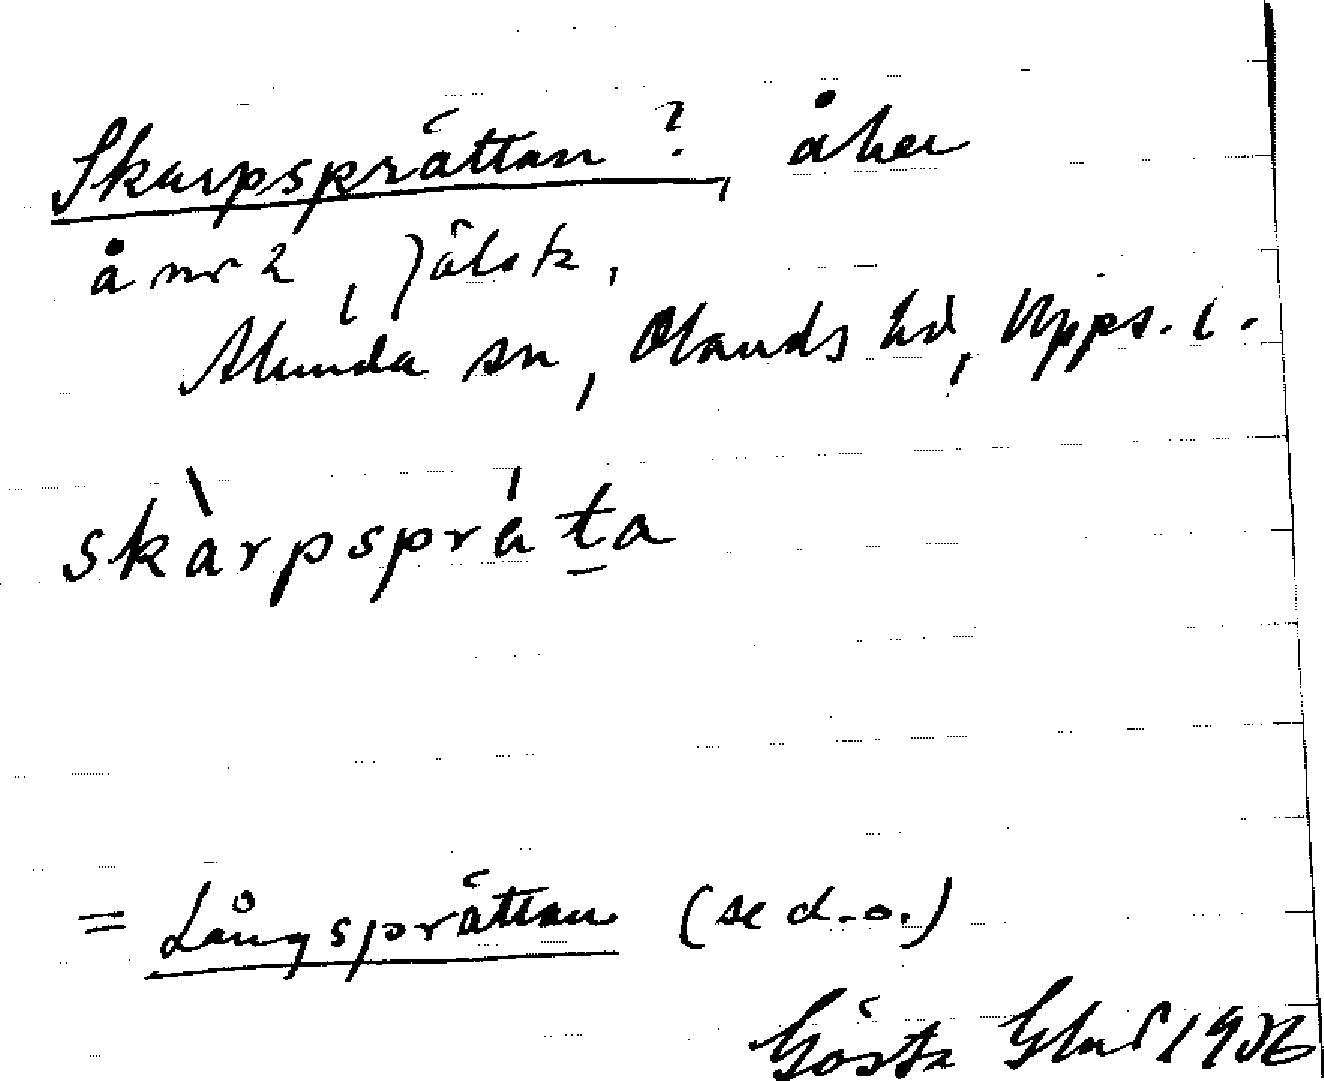 Skarpsprättan ?, åker
å nr 2, Jälsta,
Alunda sn, Olands hd, Upps. l.
skàrpspráta
= Långsprättan (se d.o.)
Gösta 1936